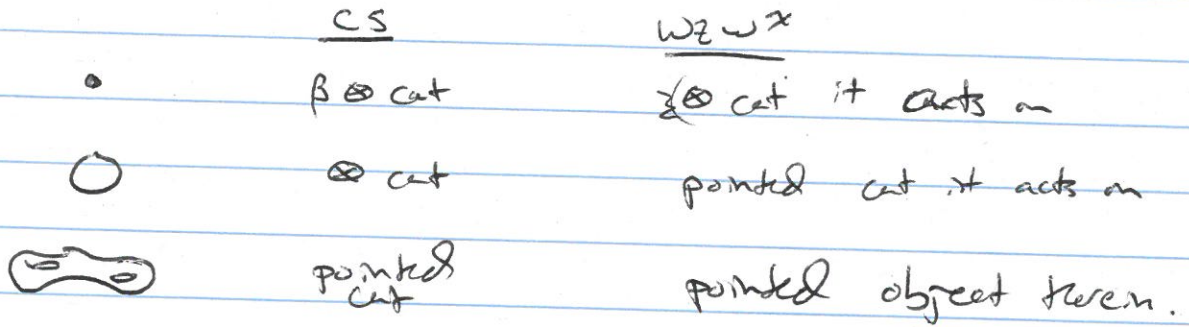 CS WZW^χ
• β ⊗ cat ⊗ cat it acts on
○ ⊗ cat pointed cat it acts on
pointed cat pointed object therein.